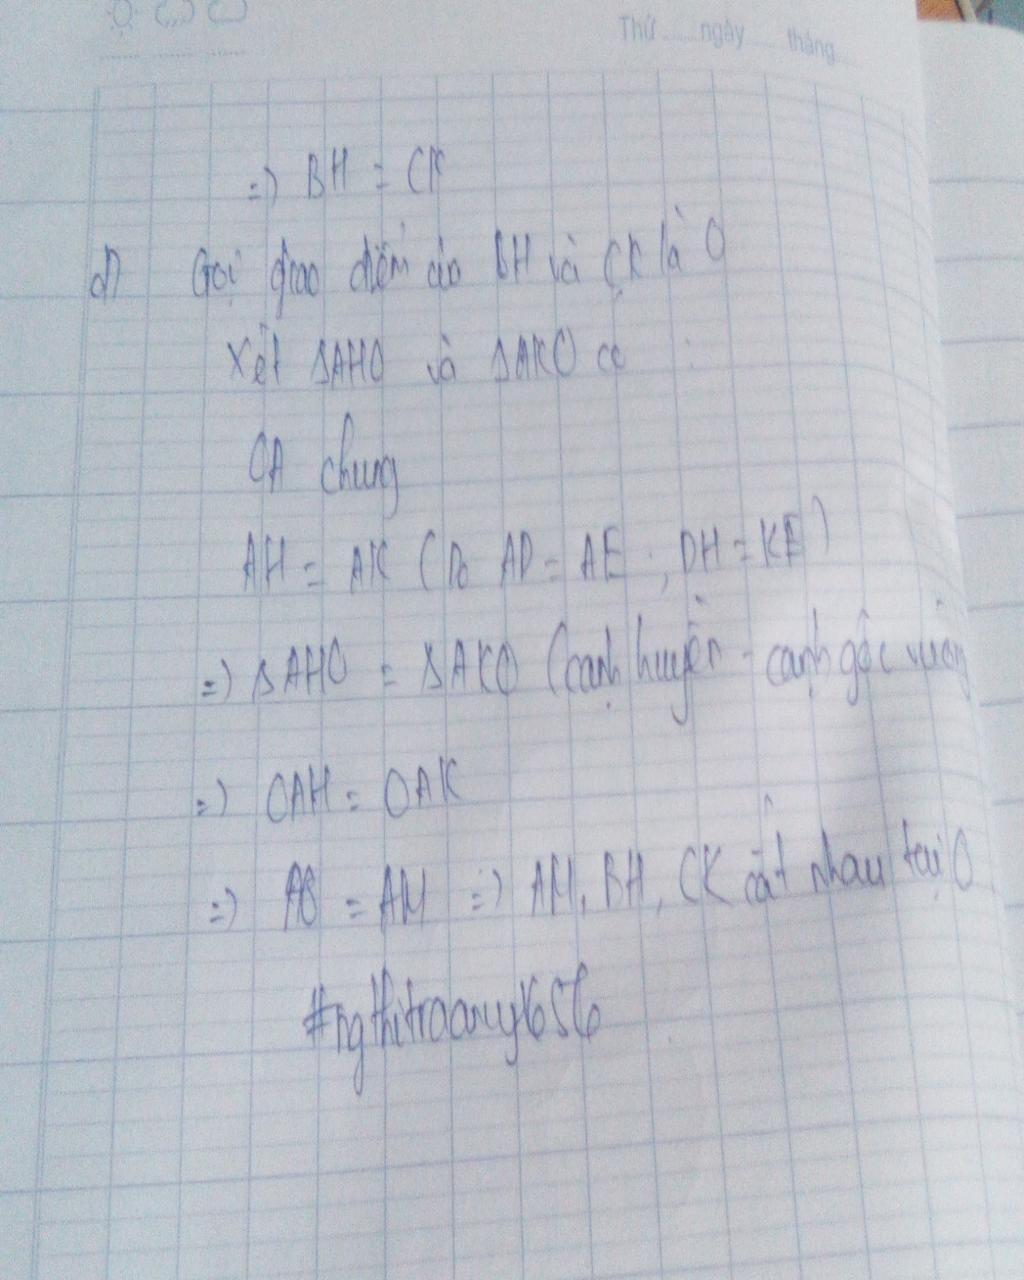 Thứ ngày tháng
=) BH = CK
d) Gọi giao điểm của BH và CK là O
Xét ΔAHO và ΔAKO có :
OA chung
AH = AK (Do AD = AE ; DH = KE)
=) ΔAHO = ΔAKO (cạnh huyền - cạnh góc vuông
=) OAH = OAK
=) AO = AM =) AM, BH, CK cắt nhau tại O